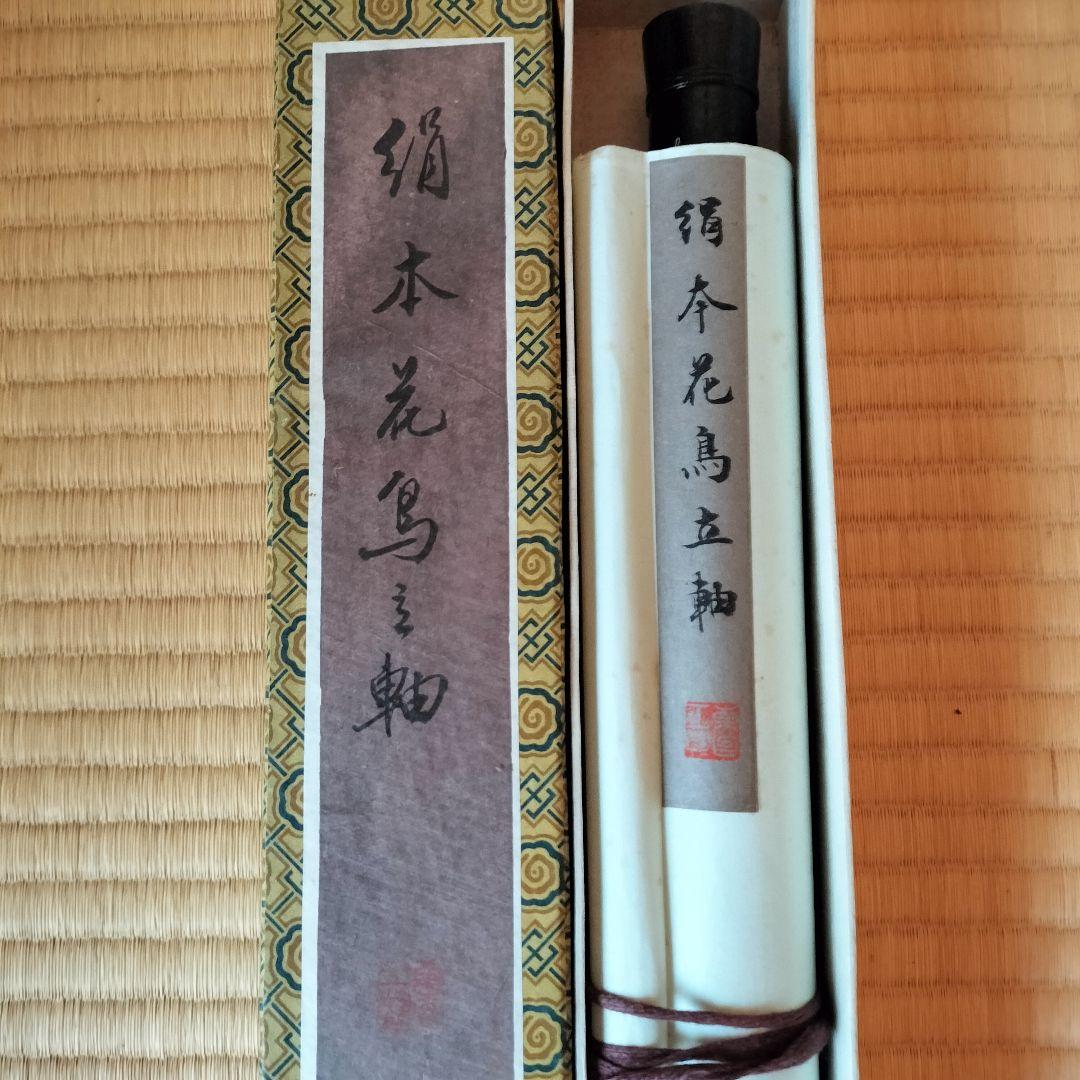 绢本花鳥立軸
绢本花鳥立軸